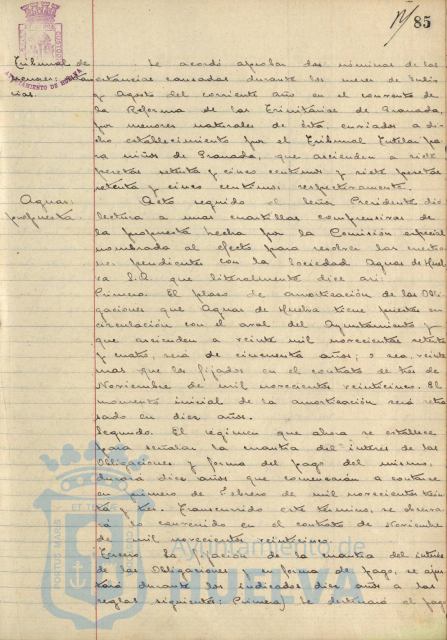 85
Tribunal de
menores. Estancias.
AYUNTAMIENTO DE HUELVA
Se acordó aprobar dos nóminas de las
estancias causadas durante los meses de Julio
y Agosto del corriente año en el convento de
la Reforma de las Trinitarias de Granada,
por menores naturales de ésta, enviados a di-
cho establecimiento por el Tribunal Tutelar pa-
ra niños de Granada, que ascienden a siete
pesetas setenta y cinco centimos y siete pesetas
setenta y cinco centimos respectivamente.
Aguas:
propuesta
Acto seguido el Señor Presidente dio
lectura a unas cuartillas comprensivas de
la propuesta hecha por la Comisión especial
nombrada al efecto para resolver las cuestio-
nes pendientes con la Sociedad Aguas de Huel-
va S.A. que literalmente dice asi:
Primero. El plazo de amortización de las Obli-
gaciones que Aguas de Huelva tiene puestas en
circulación con el aval del Ayuntamiento y
que ascienden a veinte mil novecientos setenta
y cuatro, será de cincuenta años; o sea, veinte
mas que los fijados en el contrato de tres de
Noviembre de mil novecientos veinticinco. El
momento inicial de la amortización será retra-
sado en diez años.
Segundo. El régimen que ahora se establece
para señalar la cuantia del interes de las
Obligaciones y forma del pago del mismo,
durará diez años que comenzarán a contarse
en primero de Febrero de mil novecientos trein-
ta y tres. Transcurrido este término, se observa-
rá lo convenido en el contrato de Noviembre
de mil novecientos veinticinco.
Tercero. La fijación de la cuantia del interes
de las Obligaciones y su forma de pago, se ajus-
tará durante los indicados diez años a las
reglas siguientes: Primera) Se destinará al pag
PORTUS MARIS ET TE
Ayuntamiento de
HUELVA